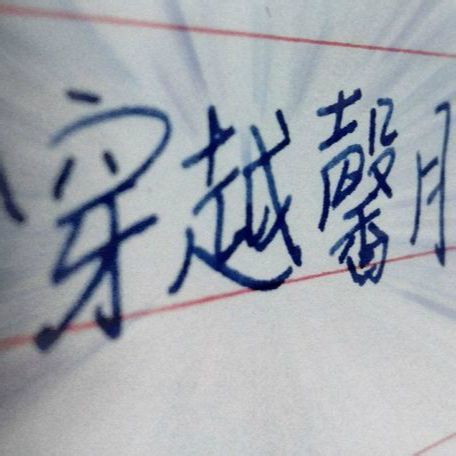 穿越馨月